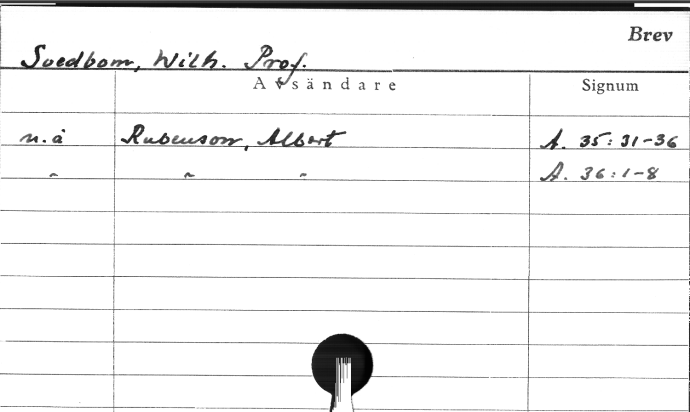 Brev
Svedbom, Wilh. Prof.
Avsändare Signum
n.å Rubenson, Albert A. 35:31-36
" " " A. 36:1-8